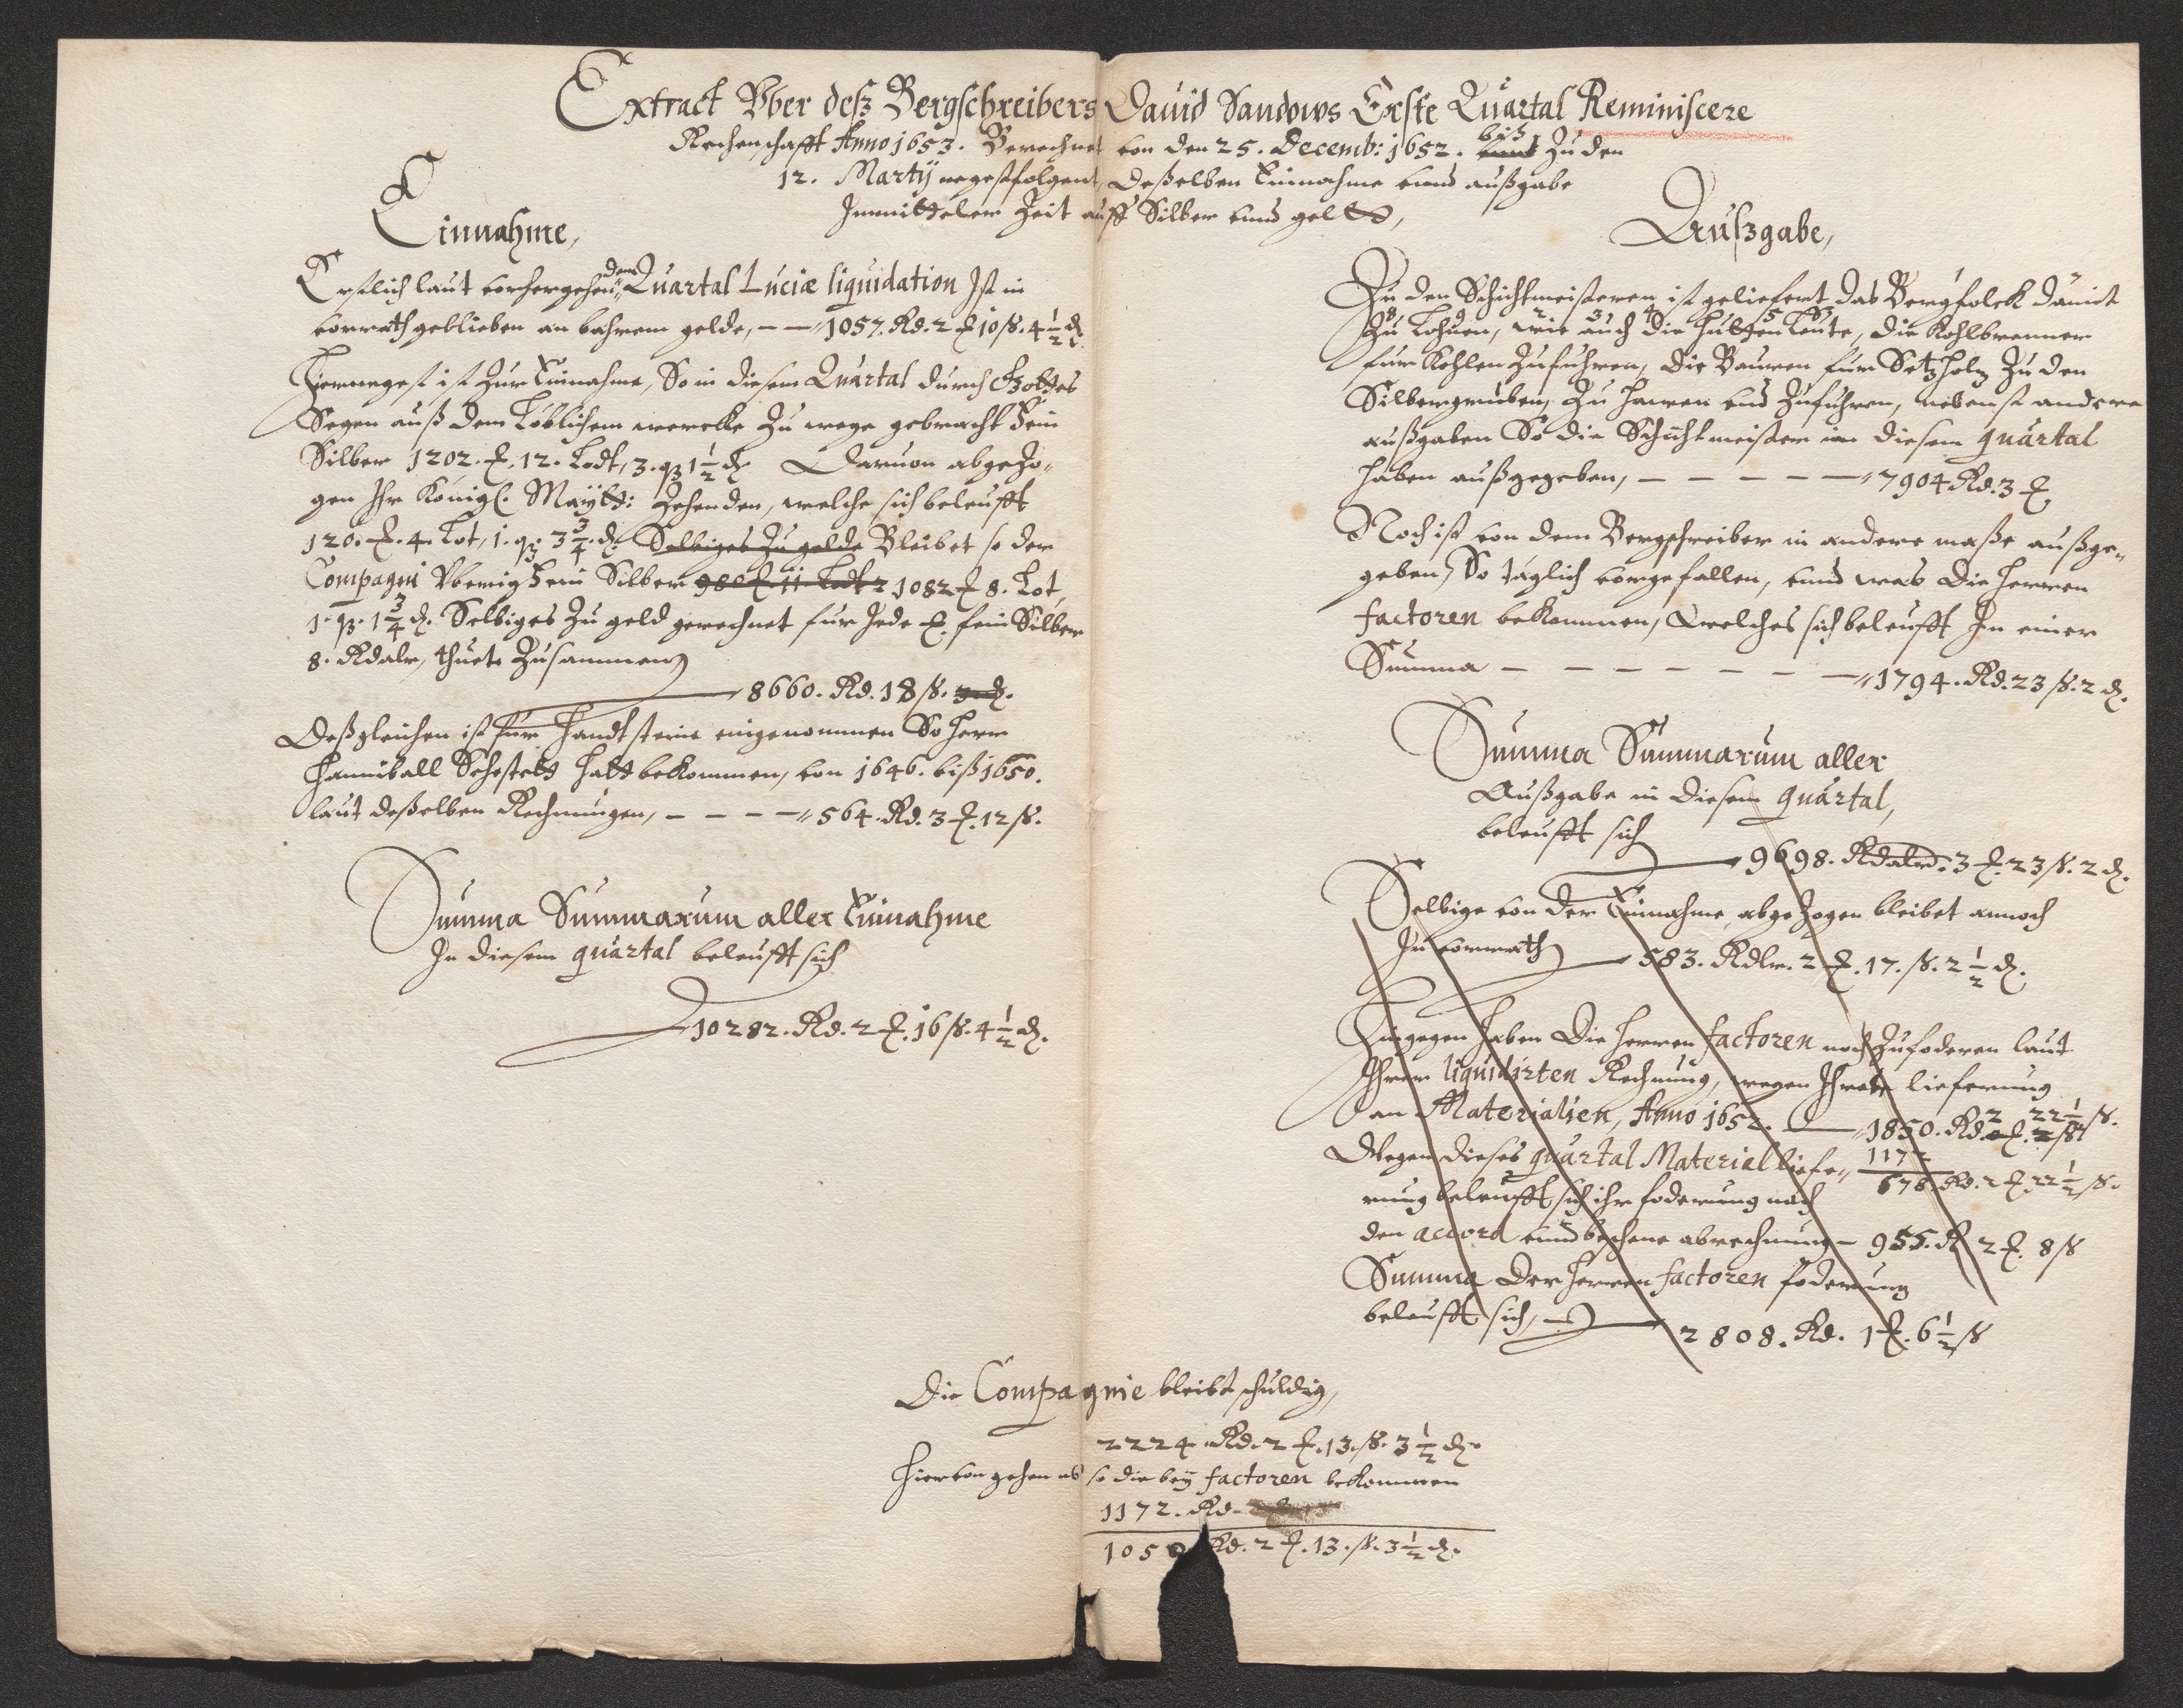 Extract Vber deß Bergschreibers David Sandows Erste Quartal Reminiscere
Rechenschafft Anno 1653. Berechnet von den 25. Decemb: 1652. biß zu den
12. Martij negstfolgent, deßelben Einnahme vnd außgabe
Inmitteler Zeit auff Silber vnd geldt,
Einnahme,
Erstlich laut vorhergehenden Quartal Luciæ liquidation Ist in
vorrath geblieben an bahrem gelde, – – 1057. Rd. 2 ℔ 10 ß. 4 1/2 ₰.
Hiernegest ist zur Einnahme, So in diesem Quartal durch Gottes
Segen auß dem Löblichem wercke zu wege gebracht Fein
Silber 1202. ℔. 12. Lodt, 3. q3 1 1/2 ₰ Daruon abgezo„
gen Ihr Königl. Maÿtt: Zehenden, welche sich beleufft
120. ℔. 4. Lot, 1. q3 3 3/4 ₰. Selbiges zu gelde Bleibet so der
Compagni Vberig Fein Silber 980 ℔ 11. Lodt 2 1082 ℔ 8. Lot,
1. q3. 1 3/4 ₰. Selbiges zu geld gerechnet fur Jede ℔. fein Silber
8. Rdalr, thuete zusammen
8660. Rd. 18 ß. 3 ₰.
Deßgleichen ist fur Handtsteine eingenommen So Herr
Hanniball Sehestett hatt bekommen, von 1646. biß 1650.
laut deßelben Rechnungen, – – – – 564. Rd. 3 ℔. 12 ß.
Summa Summarum aller Einnahme
In diesem quartal beleufft sich
10282. Rd. 2 ℔. 16 ß. 4 1/2 ₰.
Außgabe,
Zu den Schichtmeisteren ist geliefert das Bergfolck damit
zu Lohnen, wie auch die Hutten Leute, die Kohlbrenner
fur Kohlen zufuhren, die Bauren fur Setzholtz zu den
Silbergruben, zu hawen vnd zufuhren, nebenst andere
außgaben So die Schichtmeister in diesem quartal
haben außgegeben, – – – – – 7904 Rd. 3 ℔
Noch ist von dem Bergschreiber in andere maße außge„
geben, So täglich vorgefallen, vnd was die Herren
factoren bekommen, welches sich beleufft In einer
Summa – – – – – – – 1794. Rd. 23 ß. 2 ₰.
Summa Summarum aller
Außgabe in diesem quartal,
beleufft sich
9698. Rdalr. 3 ℔. 23 ß. 2 ₰.
Selbige von der Einnahme abgezogen bleibet annoch
In vorrath 583. Rdlr. 2 ℔. 17. ß. 2 1/2 ₰.
Hingegen haben die Herren factoren noch zufoderen laut
Ihrer liquidirten Rechnung, wegen Ihrer lieferung
an Materialien, Anno 1652. 1850. Rd. 2 ℔. 22 1/2 ß.
1172
Wegen dieses quartal Material liefe„ 678 Rd. 2 ℔. 22 1/2 ß.
rung beleufft sich ihr foderung nach
den accord vnd beschene abrechnung – 955. R 2 ℔. 8 ß
Summa der Herren factoren foderung
beleufft sich, 2808. Rd. 1 ℔. 6 1/2 ß
Die Compagnie bleibt schuldig,
2224 Rd. 2 ℔. 13. ß. 3 1/2 ₰.
Hiervon gehen ab so die beÿ factoren bekommen
1172. Rd.
105 Rd. 2 ℔. 13. ß. 3 1/2 ₰.